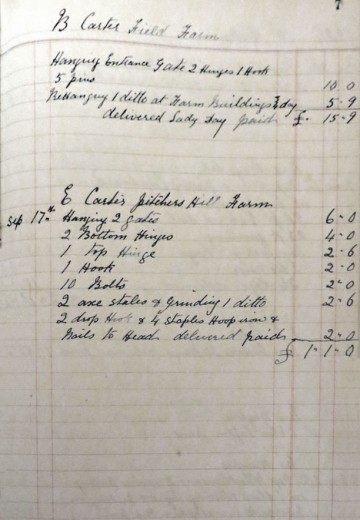 B Carter Field Farm
Hanging Entrance Gate 2 Hinges 1 Hook
5 pins 10 0
ReHanging 1 ditto at Farm Buildings ½ day 5-9
delivered Lady Day paid £- 15-9
E Carter Pitchers Hill Farm
Sep 17th Hanging 2 gates 6-0
2 Bottom Hinges 4-0
1 top Hinge 2-6
1 Hook 2-0
10 Bolts 2-0
2 axe stales & Grinding 1 ditto 2-6
2 drop Hook & 4 Staples Hoop iron &
Nails to Head delivered paid 2-0
£ 1-1-0